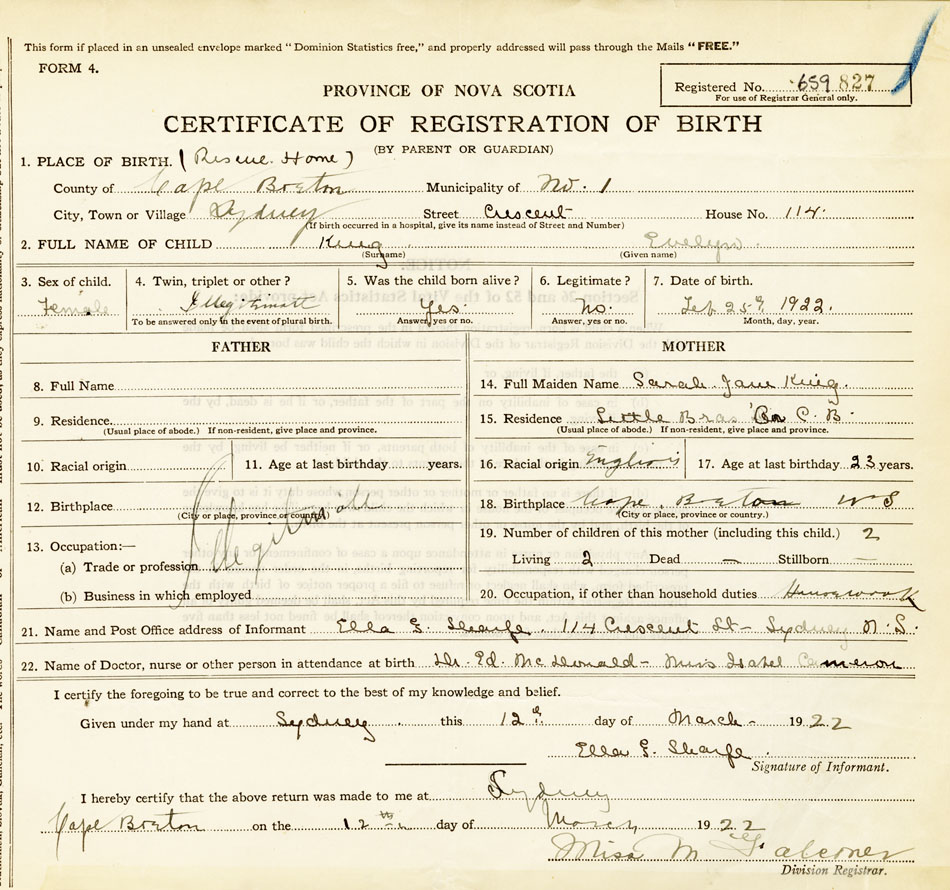 This form if placed in an unsealed envelope marked "Dominion Statistics free," and properly addressed will pass through the Mails "FREE."
FORM 4.
Registered No. 659 827
For use of Registrar General only.
PROVINCE OF NOVA SCOTIA
CERTIFICATE OF REGISTRATION OF BIRTH
(BY PARENT OR GUARDIAN)
1. PLACE OF BIRTH. (Rescue Home)
County of Cape Breton Municipality of No. 1
City, Town or Village Sydney Street Crescent House No. 114.
(If birth occurred in a hospital, give its name instead of Street and Number)
2. FULL NAME OF CHILD King Evelyn
(Surname) (Given name)
3. Sex of child. 4. Twin, triplet or other? 5. Was the child born alive? 6. Legitimate? 7. Date of birth.
Female Illegitimate Yes. No. Feb 25th 1922.
To be answered only in the event of plural birth. Answer, yes or no. Answer, yes or no. Month, day, year.
FATHER MOTHER
8. Full Name 14. Full Maiden Name Sarah Jane King.
9. Residence. 15. Residence Little Bras C. B.
(Usual place of abode.) If non-resident, give place and province. (Usual place of abode.) If non-resident, give place and province.
10. Racial origin 11. Age at last birthday years. 16. Racial origin 17. Age at last birthday 23 years.
12. Birthplace Illegitimate 18. Birthplace Cape Breton N S
(City or place, province or country) (City or place, province or country.)
13. Occupation:— 19. Number of children of this mother (including this child.) 2
(a) Trade or profession Living 2 Dead — Stillborn —
(b) Business in which employed 20. Occupation, if other than household duties Housework
21. Name and Post Office address of Informant Ella G. Sharpe. 114 Crescent St - Sydney N. S.
22. Name of Doctor, nurse or other person in attendance at birth Dr. Ed. McDonald - Miss Isabel Cameron
I certify the foregoing to be true and correct to the best of my knowledge and belief.
Given under my hand at Sydney this 12th day of March 1922
Ella G. Sharpe.
Signature of Informant.
I hereby certify that the above return was made to me at Sydney
Cape Breton on the 12th day of March 1922
Miss M Falconer
Division Registrar.